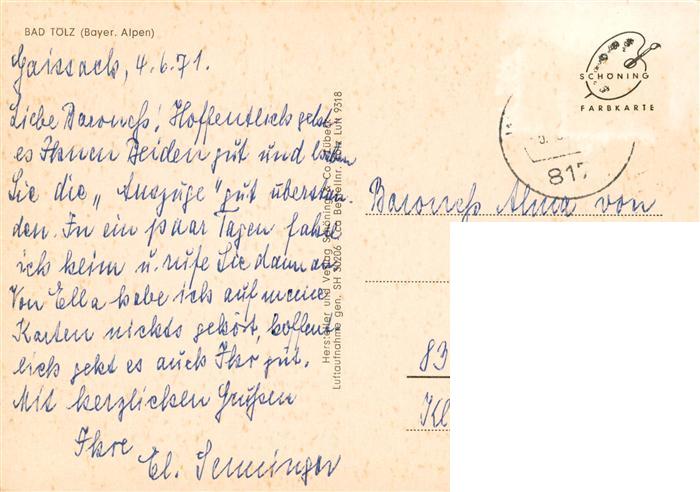 BAD TÖLZ (Bayer. Alpen)
Gaissach, 4.6.71.
Liebe Baroneß! Hoffentlich geht
es Ihnen Beiden gut und haben
Sie die „Auszüge" gut überstan-
den. In ein paar Tagen fahr
ich heim u. rufe Sie dann an.
Von Ella habe ich auf meine
Karten nichts gehört, hoffent-
lich geht es auch Ihr gut.
Mit herzlichen Grüßen
Ihre
El. Senninger
Hersteller und Verlag Schöning & Co., Lübeck
Luftaufnahme gen. SH 30206 Lübeck Luft 9318
SCHÖNING
FARBKARTE
817
Baroneß Alma von
83
Kl